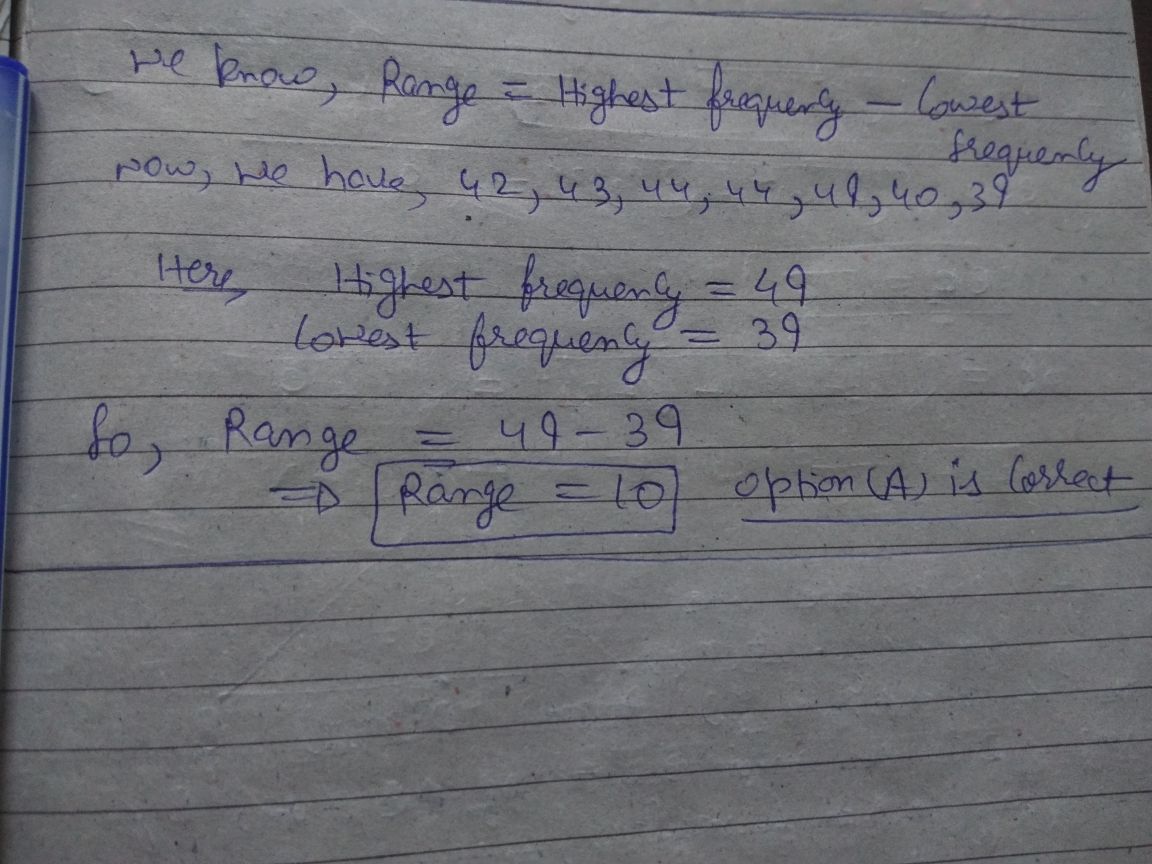 We know, Range = Highest frequency – Lowest
frequency
now, we have, 42, 43, 44, 44, 49, 40, 39
Here, Highest frequency = 49
Lowest frequency = 39
So, Range = 49 – 39
⇒ Range = 10 option (A) is Correct